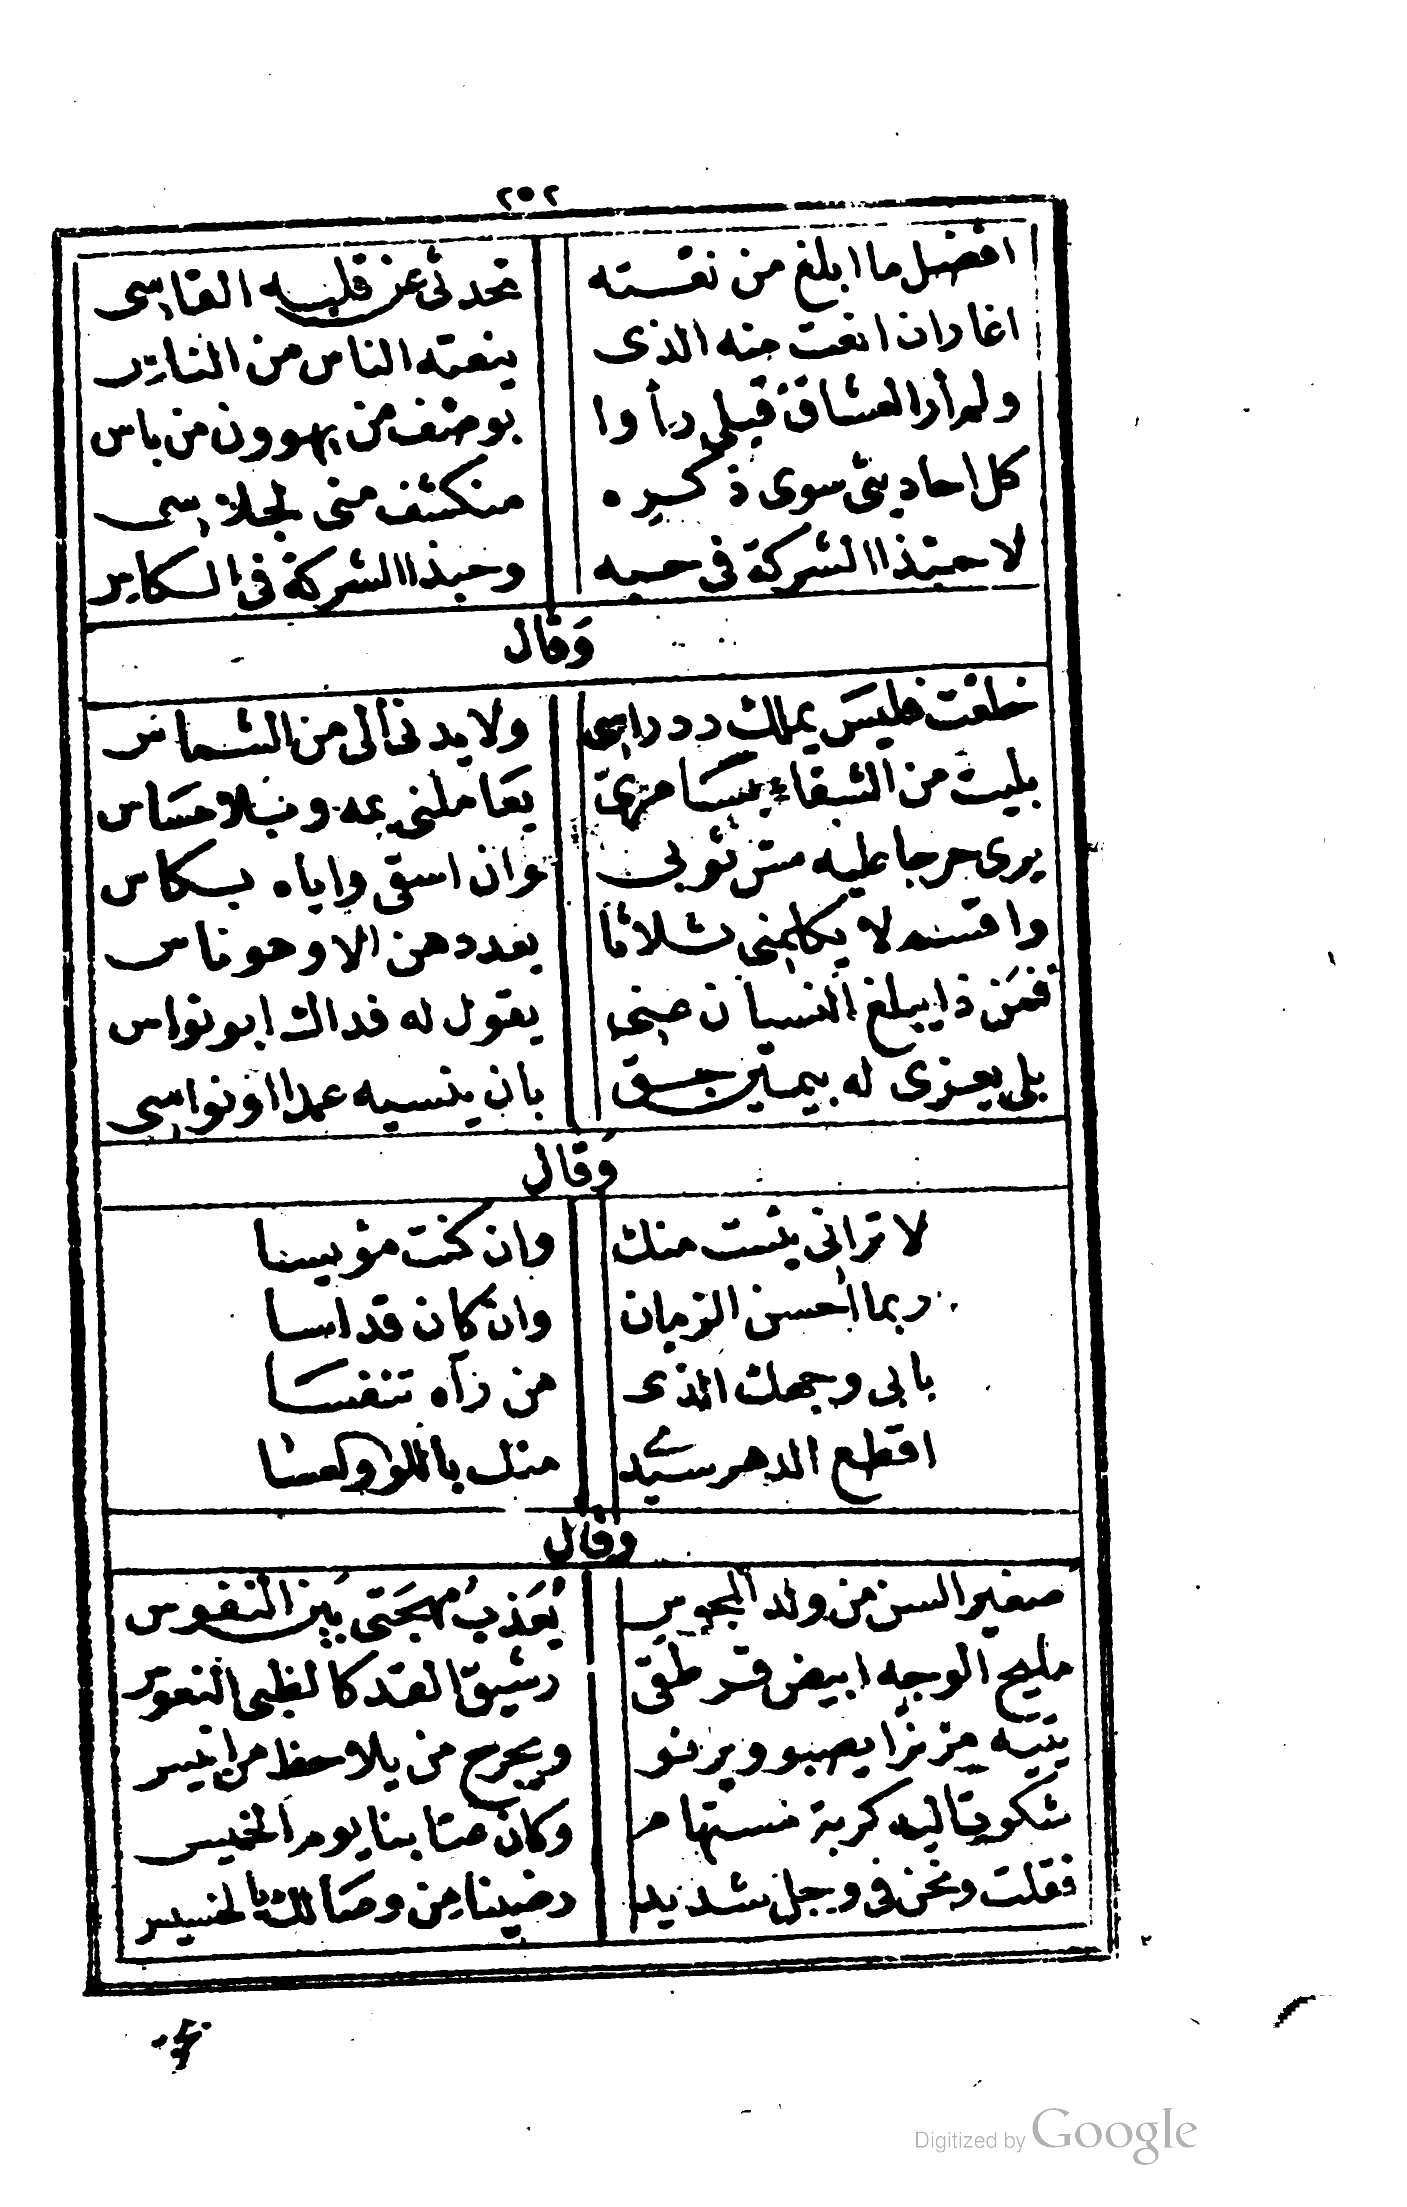 ٢٥٢
افضل ما ابلغ من نعته تحدثى عن قلبه القاسى
اغار ان انعت منه الذى ينعته الناس من الناس
ولم أر العشاق قبلى رأوا بوصف من يهوون من باس
كل احاديثى سوى ذكره منكشف منى لجلاسى
لا حبذا الشركة فى حبه وحبذا الشركة فى الكاس
وقال
خلعت فليس يملك رد راسى ولا يدنى الى من الشماس
بليت من الشقاء يعاملنى به وبلا مساس
يرى حرجا عليه مس ثوبى وان اسقى واياه بكاس
واقسم لا يكلمنى ثلاثا بعددهن الا وهو ناس
فمن ذا يبلغ النسيان عنى يقول له فداك ابو نواس
بلى يعزى له بيمين حق بان ينسيه عمدا او نواسى
وقال
لا ترانى يئست منك وان كنت مؤيسنا
ربما احسن الزمان وان كان قد اسا
بابى وجهك الذى من رآه تنفسا
اقطع الدهر سيدى منك باللو ولعسا
وقال
صغير السن من ولد المجوس يُعَذب مهجتى بين النفوس
مليح الوجه ابيض قرطقى رشيق القد كالظبى النعوس
يتيه مززا يصبو ويرنو ويجرح من يلاحظ من انيس
شكوت اليه كربة مستهام وكان عتابنا يوم الخميس
فقلت ونحن فى وجل شديد رضينا من وصالك بالخسيس